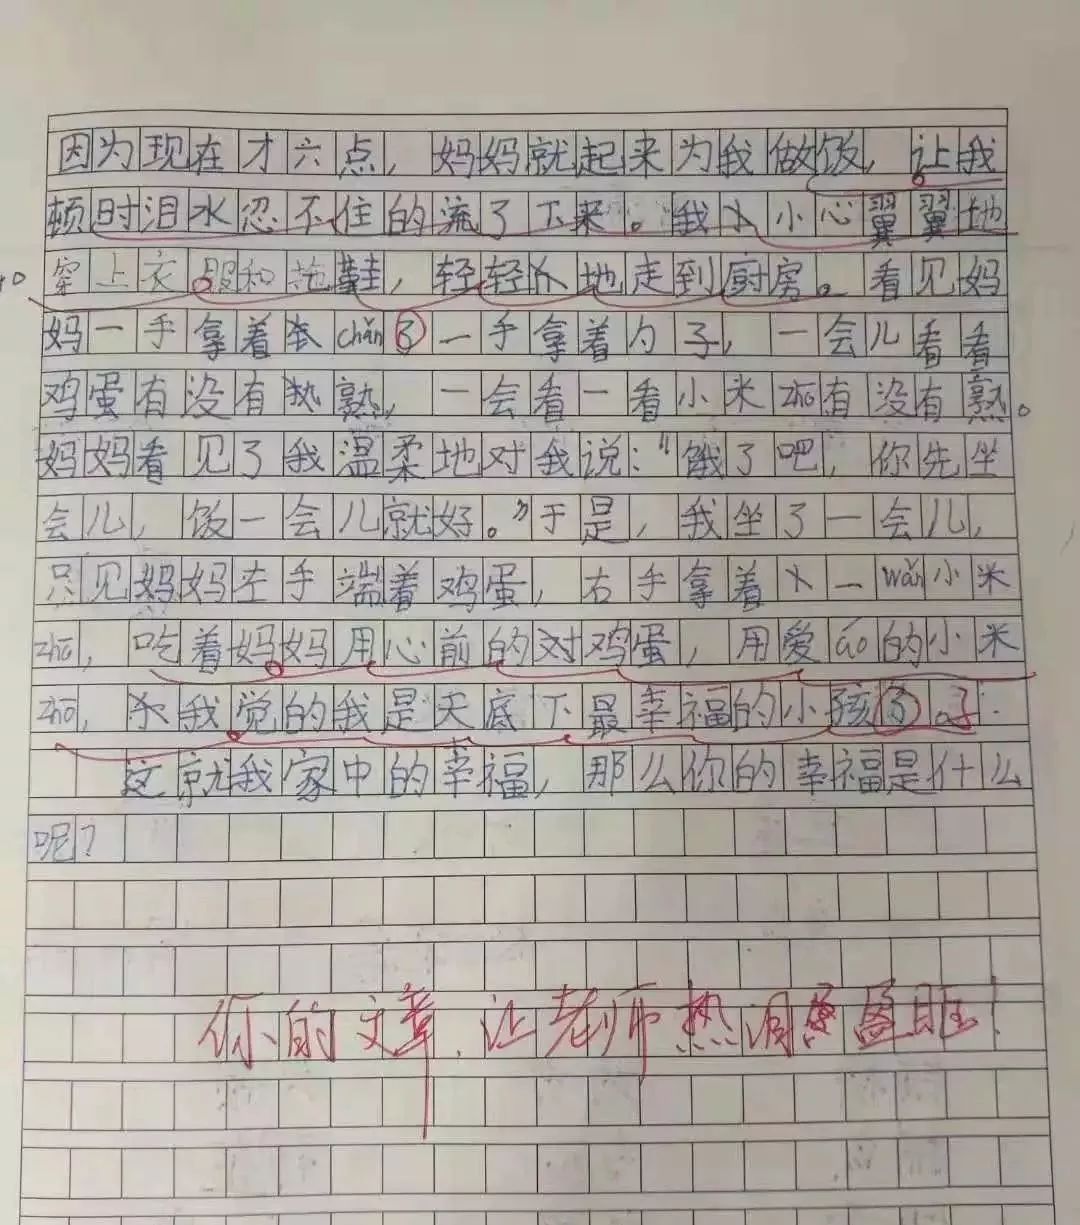 因为现在才六点，妈妈就起来为我做饭，让我
顿时泪水忍不住的流了下来。我小心翼翼地
穿上衣服和拖鞋，轻轻地走到厨房。看见妈
妈一手拿着chǎn了一手拿着勺子，一会儿看看
鸡蛋有没有熟，一会看一看小米zhō有没有熟。
妈妈看见了我温柔地对我说：“饿了吧，你先坐
会儿，饭一会儿就好。”于是，我坐了一会儿，
只见妈妈左手端着鸡蛋，右手拿着一wǎn小米
zhō，吃着妈妈用心煎的对鸡蛋，用爱áo的小米
zhō，我觉的我是天底下最幸福的小孩了。子
这就我家中的幸福，那么你的幸福是什么
呢？
你的文章，让老师热泪盈眶！